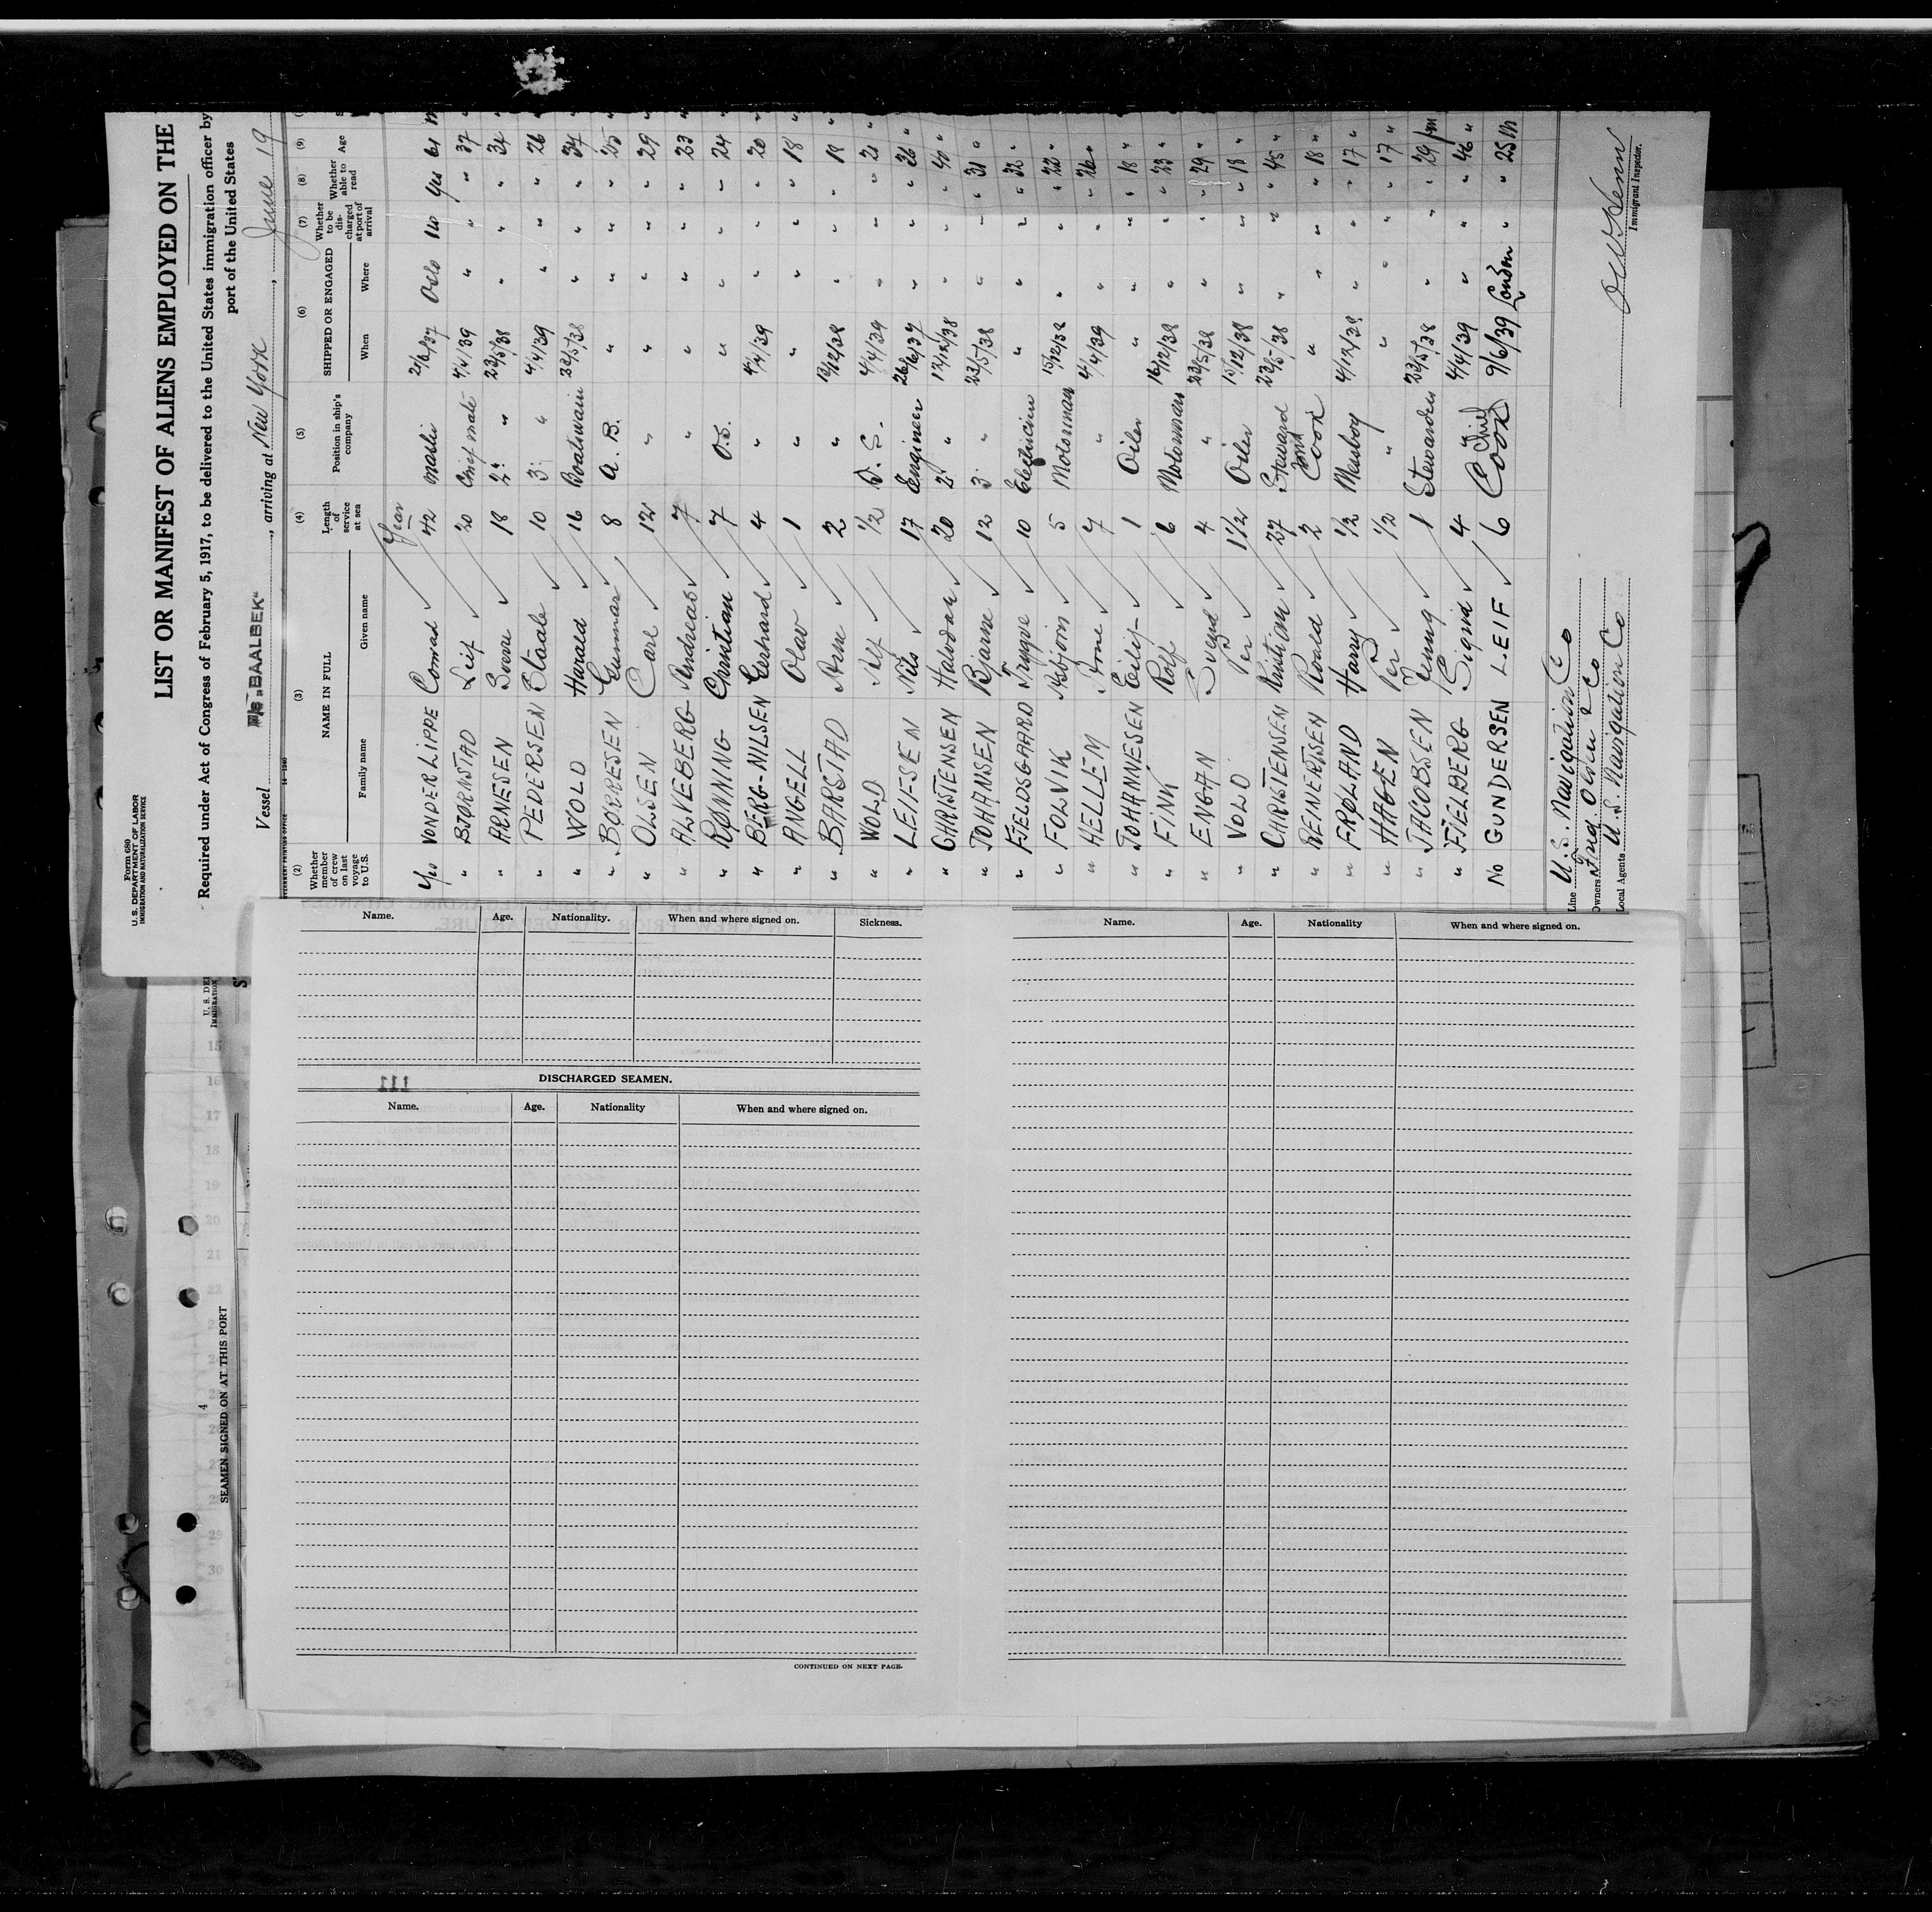 Form 680
U. S. DEPARTMENT OF LABOR
IMMIGRATION AND NATURALIZATION SERVICE
LIST OR MANIFEST OF ALIENS EMPLOYED ON THE
Required under Act of Congress of February 5, 1917, to be delivered to the United States immigration officer by
port of the United States
Vessel "BAALBEK", arriving at New York, June 19
(2) (3) (4) (5) (6) (7) (8) (9)
Whether member of crew on last voyage to U.S. NAME IN FULL Length of service at sea Position in ship's company SHIPPED OR ENGAGED Whether to be discharged at port of arrival Whether able to read Age
Family name Given name When Where
Year
Yes VONDER LIPPE Conrad 42 Master Oslo Yes 61
" BJØRNSTAD Leif 20 Chief mate 4/4/39 " " " 37
" ARNESEN 18 2. " 23/5/38 " " " 34
" PEDERSEN Staale 10 3. " 4/4/39 " " " 26
" WOLD Harald 16 Boatswain 23/5/38 " " " 34
" BØRRESEN Gunnar 8 A. B. " " " " 25
" OLSEN Carl 12 " " " " " 29
" ALVEBERG Andreas 7 " " " " " 23
" RØNNING Christian 7 O.S. " " " " 24
" BERG-NILSEN Gerhard 4 " 4/4/39 " " " 20
" ANGELL Olav 1 " " " " " 18
" BARSTAD Arne 2 " 13/12/38 " " " 18
" WOLD Alf 1/2 4/4/39 " " " 21
" LEIFSEN Nils 17 Engineer 26/6/37 " " " 36
" CHRISTENSEN Halvdan 20 2. " 12/12/38 " " " 40
" JOHANSEN Bjarne 12 3. " 23/5/38 " " " 31
" FJELDSGAARD Trygve 10 Electrician " " " " 32
" FOLVIK Asbjørn 5 Motorman 15/12/38 " " " 22
" HELLEM Arne 7 " 4/4/39 " " " 26
" JOHANNESEN Eilif 1 Oiler " " " " 18
" FINK Rolf 6 Motorman 16/12/38 " " " 23
" ENGAN Svend 4 " 23/5/38 " " " 29
" VOLD Per 1 1/2 Oiler 15/12/38 " " " 18
" CHRISTENSEN Kristian 27 Steward 23/5/38 " " " 45
" REINERTSEN Roald 2 Cook " " " " 18
" FRØLAND Harry 1/2 Messboy 4/12/38 " " " 17
" HAGEN Per 1/2 " " " " " 17
" JACOBSEN Jenny 1 Stewardess 23/5/38 " " " 29
" FJELBERG Sigrid 4 " 4/4/39 " " " 46
No GUNDERSEN LEIF 6 Chief Cook 9/6/39 London " " 25 m
Line U. S. Navigation Co
Owners Fred Olsen & Co
Local Agents U. S. Navigation Co
Immigrant Inspector.
Name. Age. Nationality. When and where signed on. Sickness.
DISCHARGED SEAMEN.
111
Name. Age. Nationality When and where signed on.
CONTINUED ON NEXT PAGE-
Name. Age. Nationality When and where signed on.
U. S. DE
IMMIGRATION
15
16
17
18
19
20
21
22
29
30
4
SEAMEN SIGNED ON AT THIS PORT